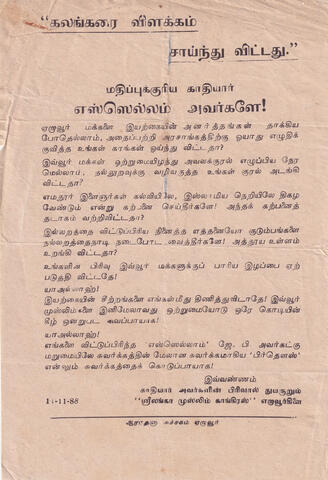 “கலங்கரை விளக்கம்
சாய்ந்து விட்டது.”
மதிப்புக்குரிய காதியார்
எஸ்ஸெல்லம் அவர்களே!
ஏழுவூர் மக்களை இயற்கையின் அனர்த்தங்கள் தாக்கிய
போதெல்லாம், அதைப்பற்றி அரசாங்கத்திற்கு ஓயாது எழுதிக்
குவித்த உங்கள் கரங்கள் ஓய்ந்து விட்டதா?
இவ்வூர் மக்கள் ஒற்றுமையிழந்து அவலக்குரல் எழுப்பிய நேர
மெல்லாம், நல்லுறவுக்கு வழியகுத்த உங்கள் குரல் அடங்கி
விட்டதா?
எமதூர் இளைஞர்கள் கல்வியிலே, இஸ்லாமிய நெறியிலே திகழ
வேண்டும் என்று கற்பனை செய்தீர்களே! அந்தக் கற்பனைத்
தடாகம் வற்றிவிட்டதா?
இல்லறத்தை விட்டுப்பிரிய நினைத்த எத்தனையோ குடும்பங்களை
நல்லறத்தைநாடி நடைபோட வைத்தீர்களே! அத்தூய உள்ளம்
உறங்கி விட்டதா?
உங்களின் பிரிவு இவ்வூர் மக்களுக்குப் பாரிய இழப்பை ஏற்
படுத்தி விட்டதே!
யாஅல்லாஹ்!
இயற்கையின் சீற்றங்களை எங்கள்மீது திணித்துவிடாதே! இவ்வூர்
முஸ்லிம்களை இனிமேலாவது ஒற்றுமையோடு ஒரே கொடியின்
கீழ் ஒன்றுபட வைப்பாயாக!
யாஅல்லாஹ்!
எங்களை விட்டுப்பிரிந்த ‘எஸ்ஸெல்லம்’ ஜே. பி அவர்கட்கு
மறுமையிலே சுவர்க்கத்தின் மேலான சுவர்க்கமாகிய ‘பிர்தௌஸ்’
என்னும் சுவர்க்கத்தைக் கொடுப்பாயாக!
இவ்வண்ணம்
காதியார் அவர்களின் பிரிவால் துயருறும்
“ஸ்ரீலங்கா முஸ்லிம் காங்கிரஸ்” எழுவூர்கிளை
-11-88
ஆராதனா அச்சகம் ஏழுவூர்